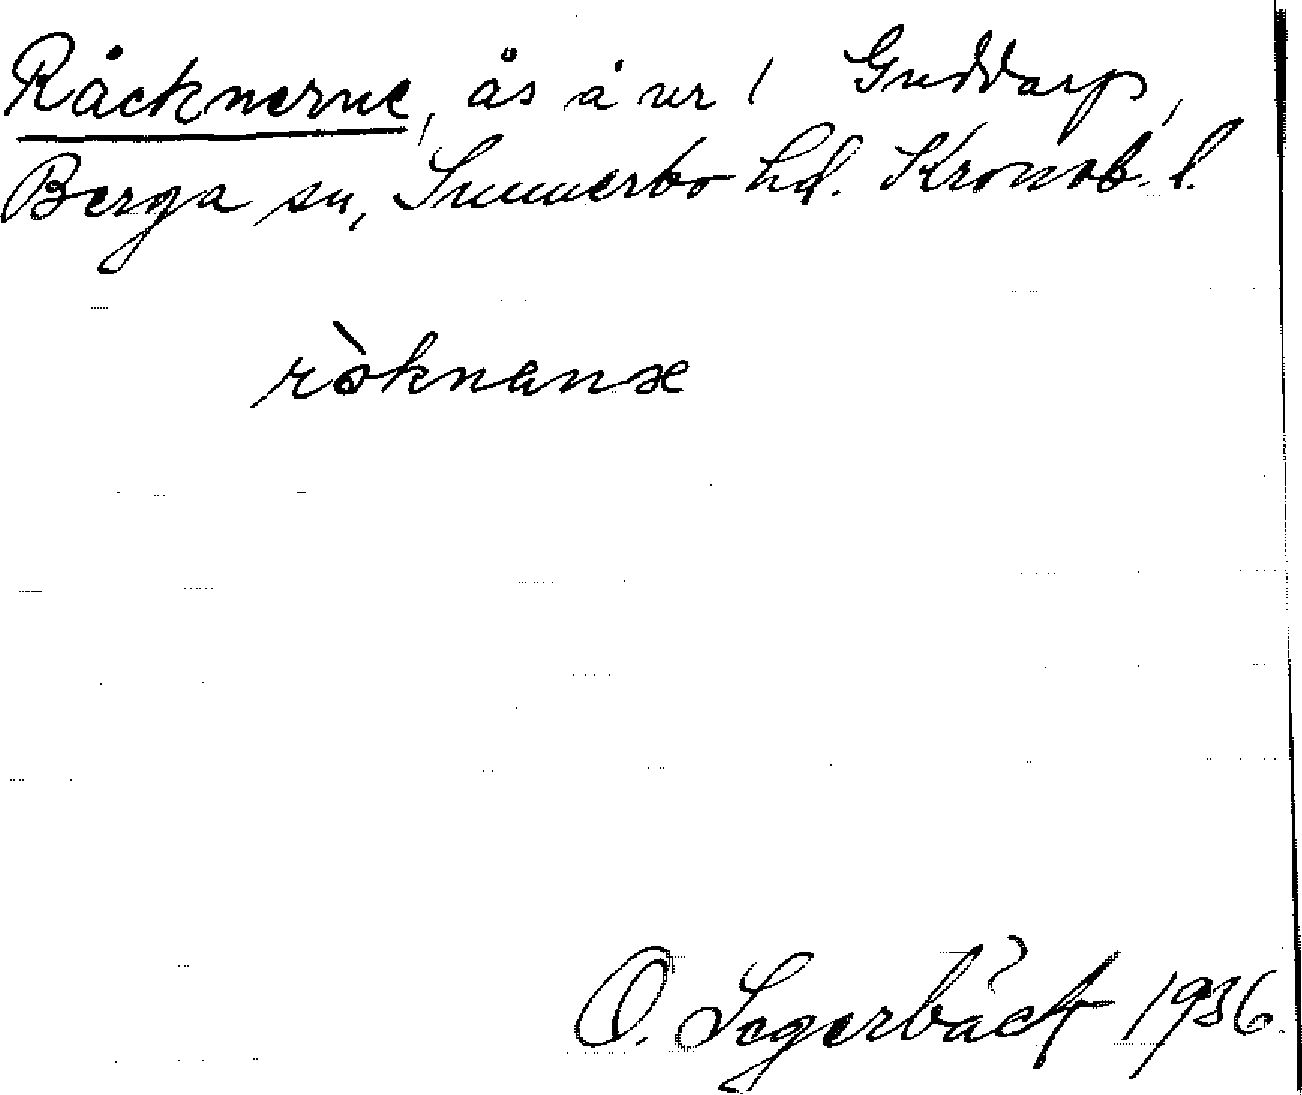 Råcknerne, ås å ur i Guddarp,
Berga sn, Sunnerbo hd. Kronob. l.
ròknanæ
O. Segerbäck 1936.